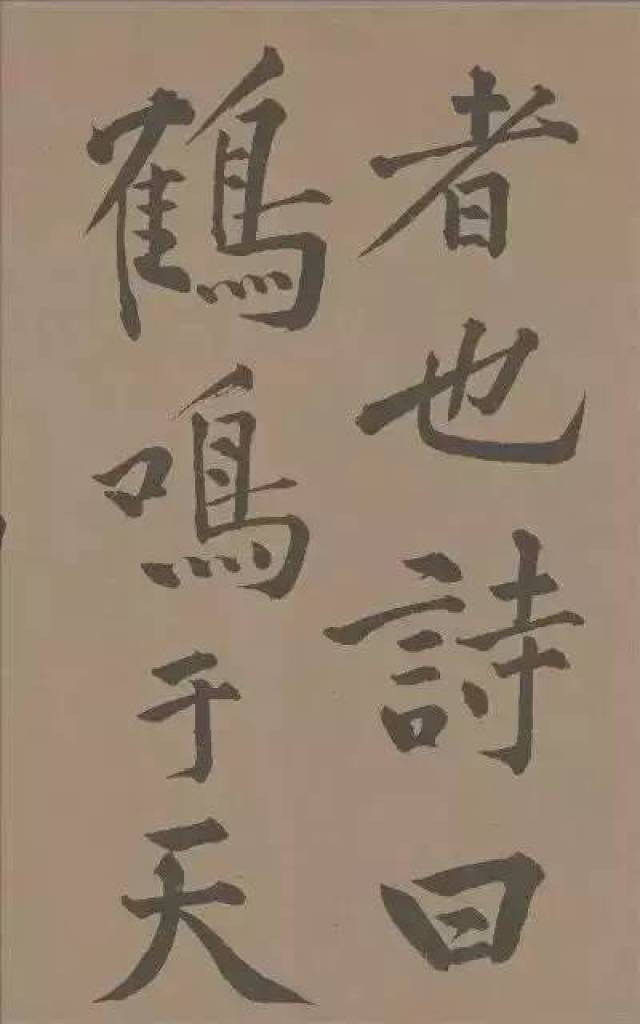 者也詩曰
鶴鳴于天